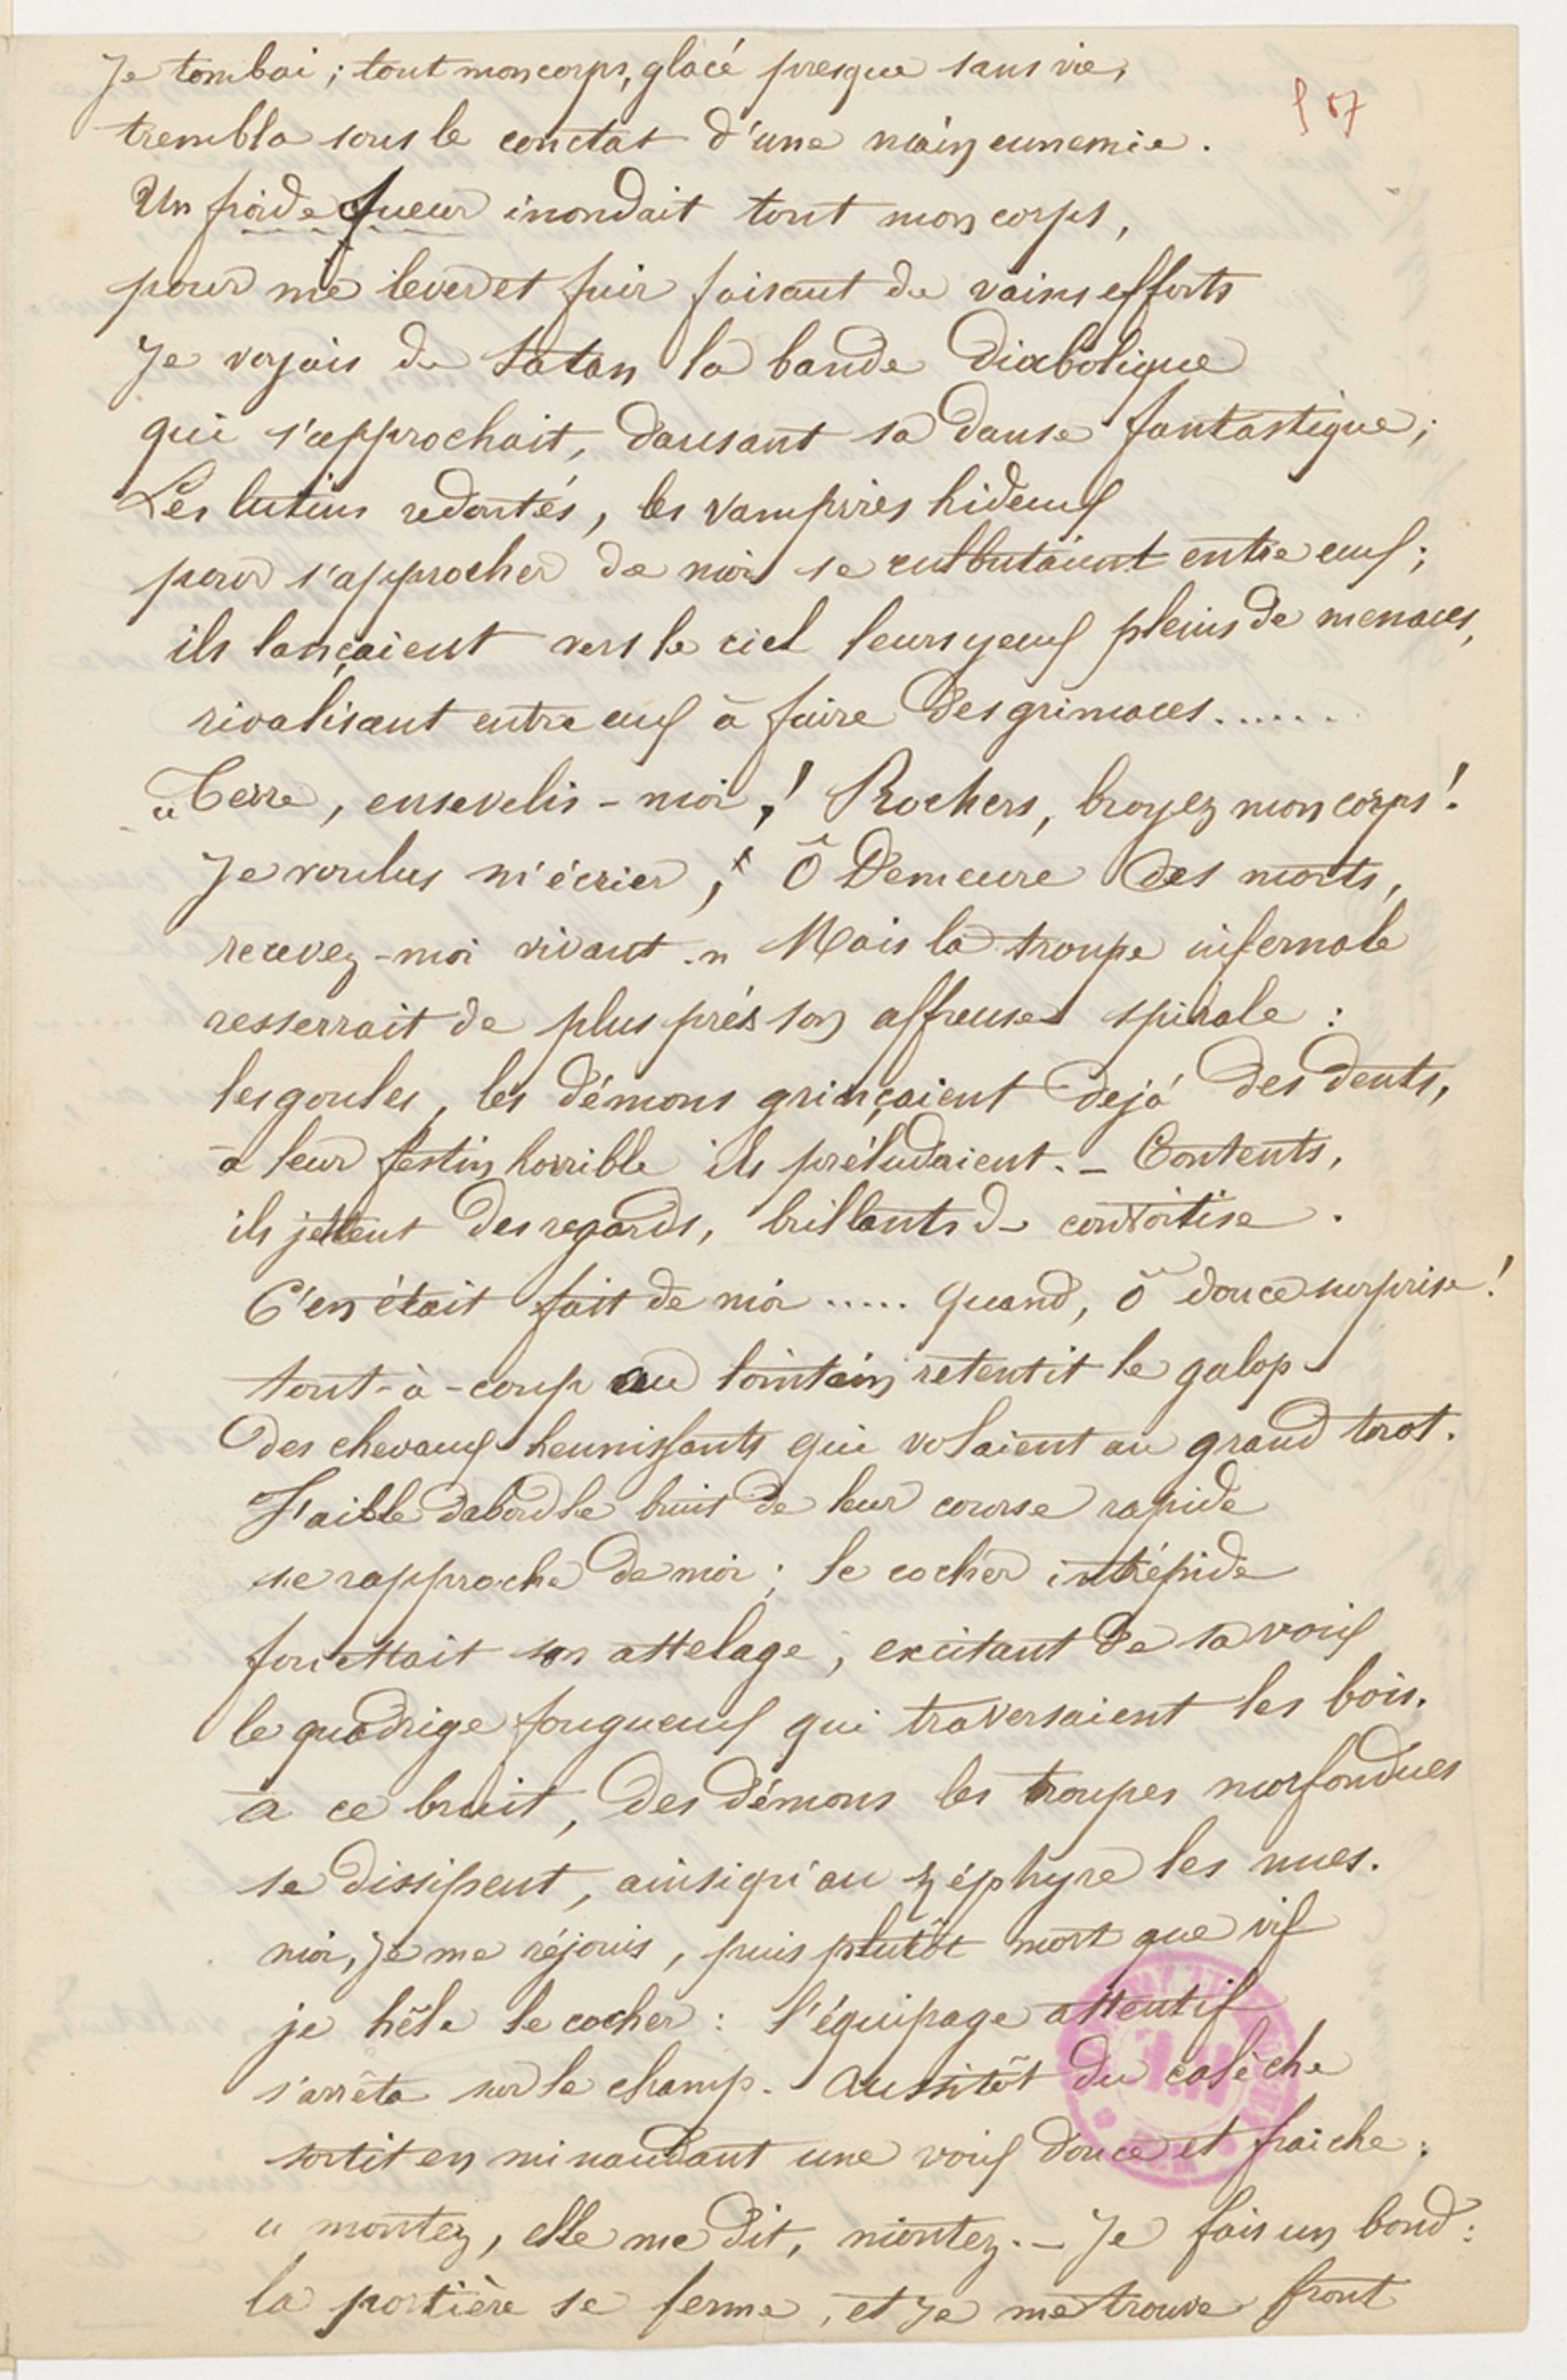 Je tombai ; tout mon corps, glacé presque sans vie,
trembla sous le conctat d'une main ennemie .
Un froide sueur inondait tout mon corps,
pour me lever et fuir faisant de vains efforts
Je voyais de Satan la bande diabolique
qui s'approchait, dansant sa danse fantastique ;
Les lutins redoutés, les vampires hideux
pour s'approcher de moi se culbutaient entre eux ;
ils lançaient vers le ciel leurs yeux pleins de menaces,
rivalisant entre eux à faire des grimaces......
« Terre, ensevelis-moi ! Rochers, broyez mon corps !
Je voulus m'écrier, Ô Demeure des morts,
recevez-moi vivant. » Mais la troupe infernale
resserrait de plus près son affreuse spirale :
les goules, les démons grinçaient dejà des dents,
à leur festin horrible ils préludaient. – Contents,
ils jettent des regards, brillants de convoitise .
C'en était fait de moi ..... quand, ô douce surprise !
tout-à-coup au lointain retentit le galop
des chevaux hennissants qui volaient au grand trot.
Faible dabord le bruit de leur course rapide
se rapproche de moi ; le cocher intrépide
fouettait son attelage, excitant de sa voix
le quadrige fougueux qui traversaient les bois.
à ce bruit, des démons les troupes morfondues
se dissipent, ainsi qu'au zéphyre les nues.
moi, je me réjouis, puis plutôt mort que vif
je hêle le cocher : l'équipage attentif
s'arrêta sur le champ. Aussitôt du calèche
sortit en minaudant une voix douce et fraiche :
« montez, elle me dit, montez. – Je fais un bond :
la portière se ferme, et je me trouve front